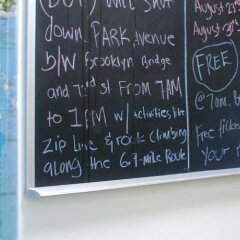 will shut
down PARK Avenue
b/w Brooklyn Bridge
and 72rd st FROM 7AM
to 1PM w/ activities like
Zip line & rock climbing
along the 6.9-mile Route
August 23rd
August 30
FREE
@ 7am
Free
your